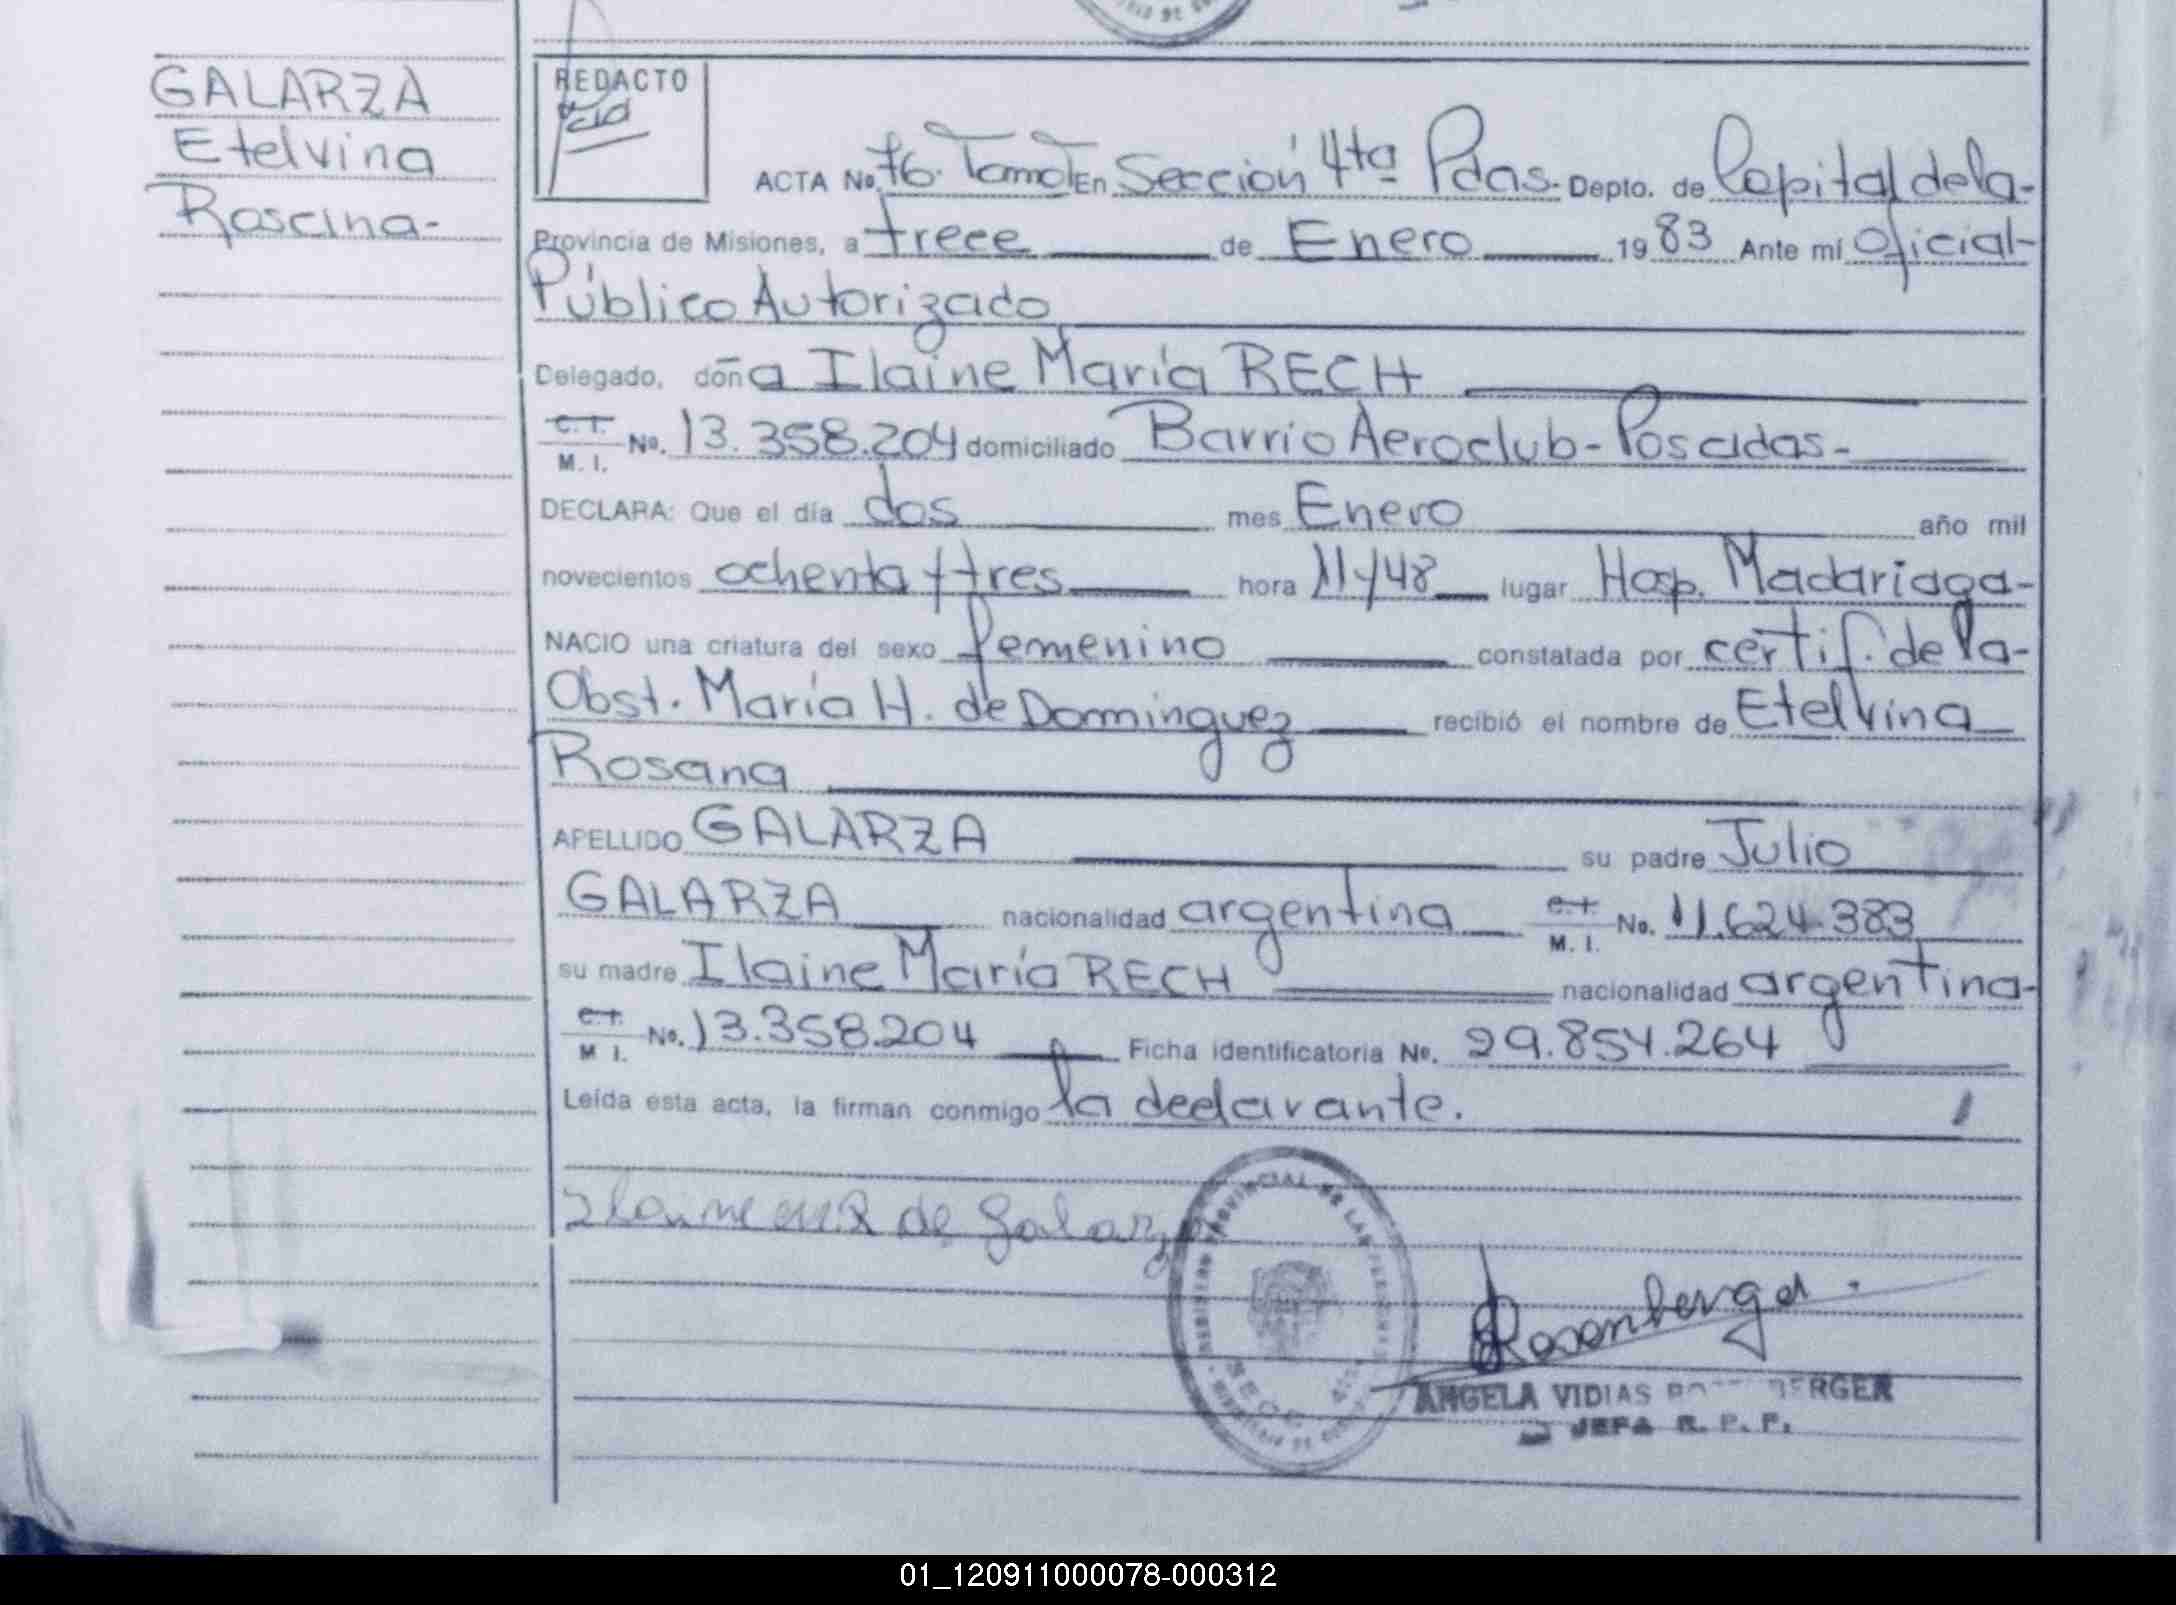 GALARZA
Etelvina
Rosana-
REDACTO
ACTA No. 76. Tomo I En Sección 4ta Pdas. Depto. de Capital de la-
Provincia de Misiones, a trece de Enero 1983 Ante mí Oficial-
Público Autorizado
Delegado, doña Ilaine María RECH
C.I. M. I. No. 13.358.204 domiciliado Barrio Aeroclub - Posadas-
DECLARA: Que el día dos mes Enero año mil
novecientos ochenta y tres hora 11/48 lugar Hosp. Madariaga-
NACIO una criatura del sexo femenino constatada por certif. de la-
Obst. María H. de Dominguez recibió el nombre de Etelvina
Rosana
APELLIDO GALARZA su padre Julio
GALARZA nacionalidad argentina C.I. M. I. No. 11.624.383
su madre Ilaine María RECH nacionalidad argentina-
C.I. M I. No. 13.358.204 Ficha identificatoria No. 29.854.264
Leída esta acta, la firman conmigo la declarante.
de Galarza
REGISTRO PROVINCIAL DE LAS PERSONAS
Rosenberger
ANGELA VIDIAS BERGER
JEFA R. P. P.
01_120911000078-000312